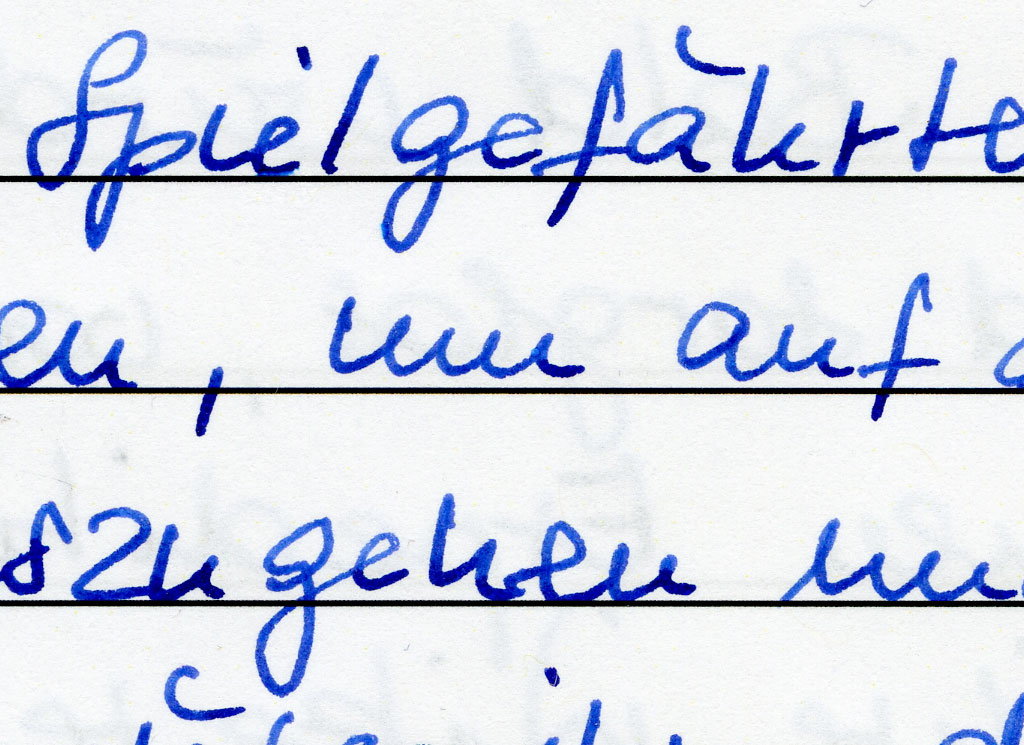 Spielgefährte
en, um auf
szugehen un